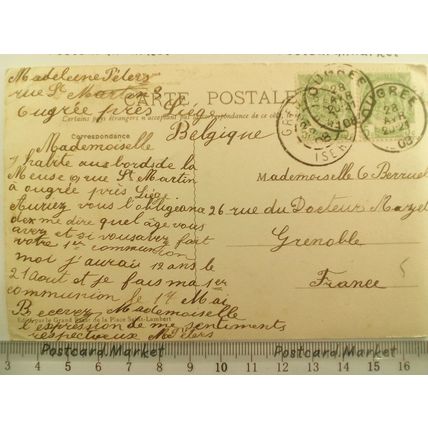 Madeleine Péters
rue St Martin
Ougrée près Liége
Belgique
CARTE POSTALE
Certains pays étrangers n'acceptent pas de correspondance de ce côté
Correspondance
Mademoiselle
J'habite aux bords de la
Meuse rue St Martin
à ougrée près Liége.
Aurez vous l'obligeance
de me dire quel âge vous
avez et si vous avez fait
votre 1re communion
moi j'aurais 12 ans le
21 Août et je fais ma 1re
communion le 14 Mai
Recevez Mademoiselle
l'expression de mes sentiments
respectueux M Péters
Grand de la Place Saint-Lambert
OUGRÉE
28
AVR
08
OUGRÉE
28
AVR
20-21
08
ISER
Mademoiselle C Berruel
26 rue du Docteur Mazet
Grenoble
France
5
Postcard.Market
Postcard.Market
3 4 5 6 7 8 9 10 11 12 13 14 15 16